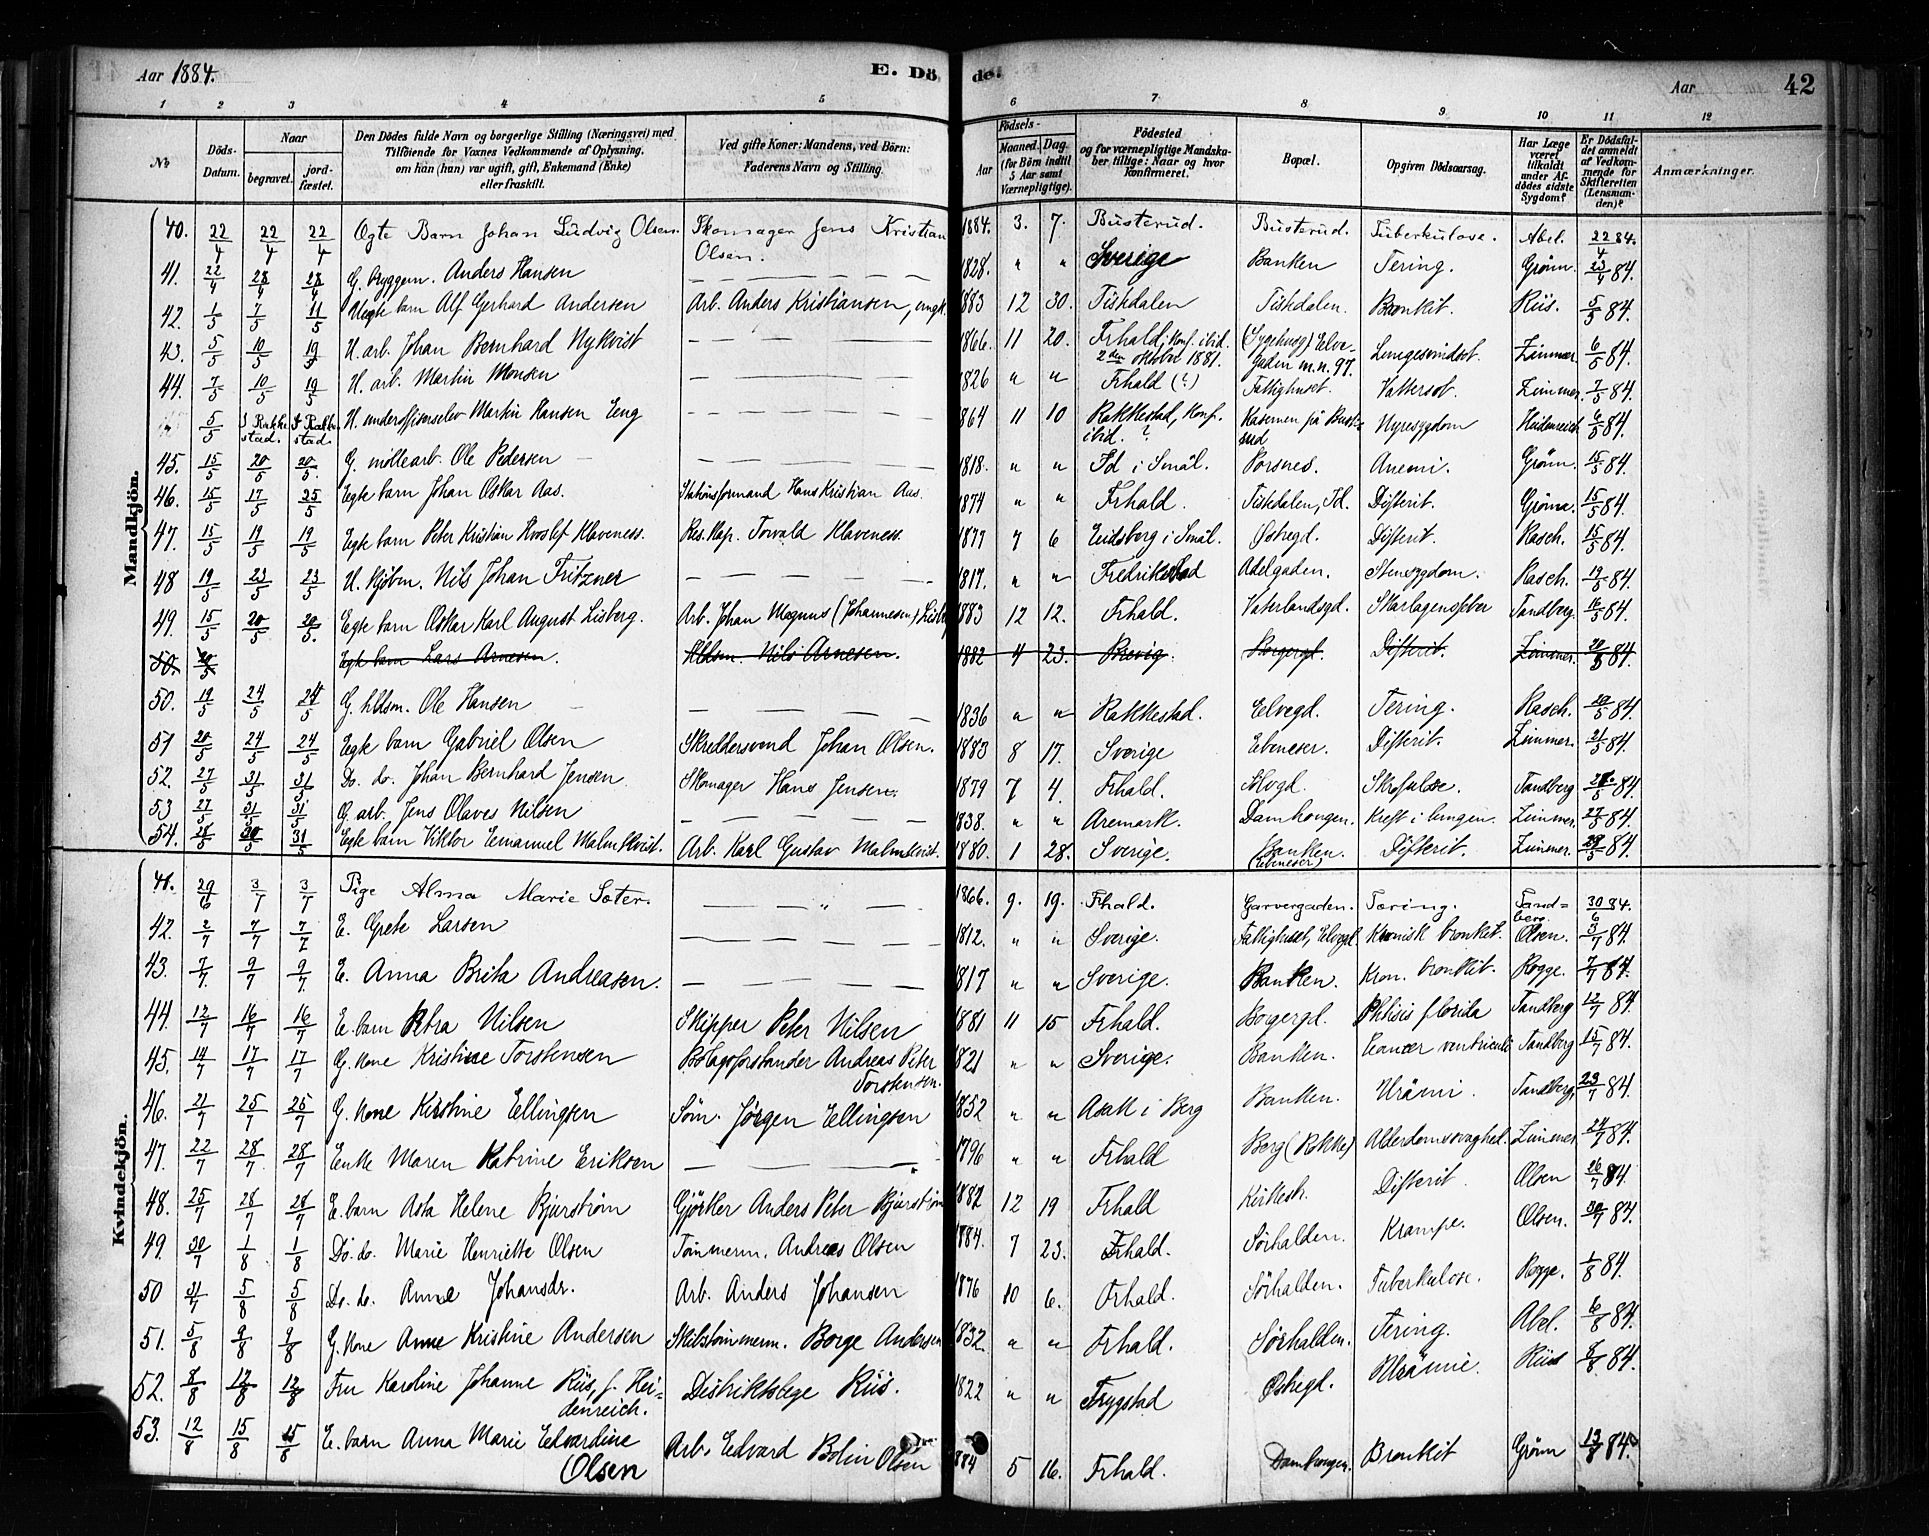 Aar 1884. E. Dö de. Aar 42
1 2 3 4 5 6 7 8 9 10 11 12
No. Döds-Datum. Naar begravet. jord-fæstet. Den Dödes fulde Navn og borgerlige Stilling (Næringsvei) med Tilföiende for Voxnes Vedkommende af Oplysning. om han (hun) var ugift, gift, Enkemand (Enke) eller fraskilt. Ved gifte Koner: Mandens, ved Börn: Faderens Navn og Stilling. Födsels- Aar Maaned. Dag (for Börn indtil 5 Aar samt Værnepligtige). Födested og for værnepligtige Mandskaber tillige: Naar og hvor konfirmeret. Bopæl. Opgiven Dödsaarsag. Har Læge været tilkaldt under Afdödes sidste Sygdom? Er Dödsfaldet anmeldt af Vedkommende for Skifteretten (Lensmanden)? Anmærkninger.
Mandkjön.
40. 22/4 22/4 22/4 Ægte Barn Johan Ludvig Olsen. Skomager Jens Kristian Olsen. 1884. 3. 7. Busterud. Busterud. Tuberkulose. Abel. 22/4 84.
41. 22/4 28/4 28/4 G. bryggem. Anders Hansen 1828. " " Sverige Banken Tering. Grønn. 23/4 84.
42. 1/5 7/5 11/5 Uegte barn Alf Gerhard Andersen Arb. Anders Kristiansen, ungk. 1883 12 30. Tistedalen Tistedalen. Bronkit. Riis. 5/5 84.
43. 5/5 10/5 19/5 U. arb. Johan Bernhard Nykvist 1866. 11 20. Frhald, Konf. ibid. 2den oktober 1881. (Sygehusg) Elvegaden m.n. 97. Lungesvindsot. Zimmer. 6/5 84.
44. 7/5 10/5 19/5 U. arb. Martin Monsen 1826 " " Frhald (?) Fattighuset. Vattersot. Zimmer. 7/5 84.
5/5 I Rakkestad. I Rakkestad. U. underoffisierselev Martin Hansen Eeng 1864 11 10 Rakkestad, Konf. ibid. ? Kasernen på Busterud Nyresygdom Heidenreich 6/5 84.
45. 15/5 20/5 20/5 G. møllearb. Ole Pedersen 1818. " " Id i Smål. Porsnes. Anemi. Grønn. 15/5 84.
46. 15/5 17/5 25/5 Egte barn Johan Oskar Aas. Stationsformand Hans Kristian Aas. 1874 " " Frhald. Tistedalen, Id. Difterit. Grønn. 15/5 84.
47. 15/5 19/5 19/5 Egte barn Peter Kristian Klaveness. Res. Kap. Torvald Klaveness. 1877 7 6 Eidsberg i Smål. Østregd. Difterit. Rasch. 15/5 84.
48 19/5 23/5 23/5 U. kjøbm. Nils Johan Fritzner 1817. " " Fredrikstad Adelgaden. Stensygdom. Rasch. 19/5 84.
49. 15/5 20/5 20/5. Egte barn Oskar Karl August Lisberg. Arb. Johan Magnus (Johannesen) Lisberg 1883 12 12. Frhald. Vaterlandsgd. Skarlagensfeber Tandberg. 16/5 84.
50. 20/5 Egte barn Lars Arnesen. Hdlsm. Nils Arnesen. 1882 4 23. Brevig. Borgergd. Difterit. Zimmer. 20/5 84.
50. 19/5 24/5 24/5 G. hdlsm. Ole Hansen 1836 " " Rakkestad. Elvegd. Tering. Rasch. 20/5 84.
51 20/5 24/5 24/5 Egte barn Gabriel Olsen Skreddersvend Johan Olsen. 1883 8 17. Sverige Ebeneser. Difterit. Zimmer. 21/5 84.
52. 27/5 31/5 31/5 Do. do. Johan Bernhard Jensen. Skomager Hans Jensen. 1879 7 4. Frhald. Skofulose. Tandberg 28/5 84.
53 27/5 31/5 31/5 G. arb. Jens Olaves Nilsen 1838. " " Aremark. Damhougen. Kreft i lungen. Zimmer. 27/5 84.
54. 28/5 20/5 31/5 Egte barn Viktor Emanuel Malmkvist. Arb. Karl Gustav Malmkvist. 1880. 1 28. Sverige. Banken. (Ebeneser) Difterit. Zimmer. 29/5 84.
Kvindekjön.
41. 29/6 3/7 3/7 Pige Alma Marie Soter. 1866. 9. 19. Frhald. Garvergaden. Tæring. Tandberg. 30/6 84.
42. 2/7 7/7 7/7 E. Grete Larsen 1812. " " Sverige. Fattighuset, Elvegd. Kronisk bronkit. Olsen. 3/7 84.
43. 7/7. 9/7 9/7. E. Anna Brita Andreasen. 1817 " " Sverige. Banken. Kron. bronkit. Rogge. 7/7 84.
44. 12/7 16/7 16/7 E. barn Petra Nilsen Skipper Peter Nilsen 1881 11 15 Frhald. Borgergd. Phtisis florida Tandberg 12/7 84.
45. 14/7 17/7 17/7 G. kone Kristine Torstensen Bolagsforstander Andreas Peter Torstensen. 1821 " " Sverige. Banken. Cancer ventriculi Tandberg 15/7 84.
46. 21/7 25/7 25/7 G. kone Kirstine Ellingsen Søm. Jörgen Ellingsen 1852 " " Asak i Berg Banken. Urämi. Tandberg. 23/7 84.
47. 22/7 28/7 28/7 Enke Maren Katrine Eriksen 1796 " " Frhald Berg (Rokke) Alderdomssvaghed. Zimmer. 24/7 84.
48. 25/7 28/7 28/7 E. barn Asta Helene Bjurstrøm Gjörtler Anders Peter Bjurstrøm 1882 12 19 Frhald Kirkestr. Difterit. Olsen 26/7 84.
49. 30/7 1/8 1/8 Do. do. Marie Henriette Olsen Tømmerm. Andreas Olsen 1884. 7 23. Frhald. Sörhalden. Krampe. Olsen. 30/7 84.
50 31/7 5/8 5/8 Do. do. Anne Johansdr. Arb. Anders Johansen 1876 10 6. Frhald. Sörhalden. Tuberkulose. Rogge. 1/8 84.
51. 5/8 9/8 9/8 G. kone Anne Kristine Andersen Skibstømmerm. Borge Andersen 1832. " " Frhald. Sörhalden. Tering. Abel. 6/8 84.
52. 8/8 12/8 12/8 Fru Karoline Johanne Riis, f. Heidenreich. Distriktslege Riis. 1822 " " Trygstad Østregd. Urämie. Riis 8/8 84.
53. 12/8 15/8 15/8 E. barn Anna Marie Edvardine Olsen Arb. Edvard Bolin Olsen 1884 5 16. Frhald. Damhougen. Bronkit Grønn 13/8 84.